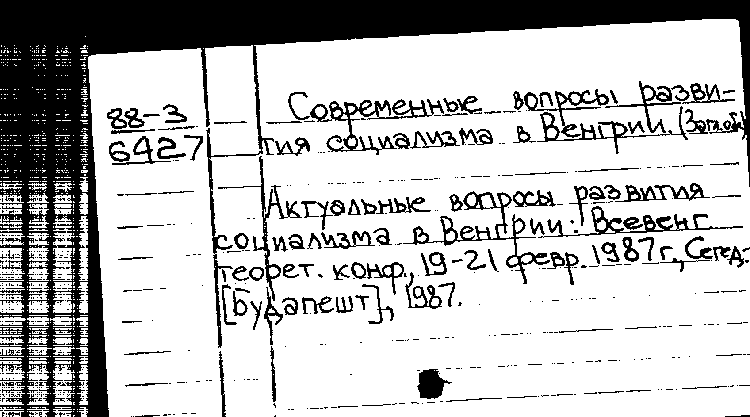 88-3
6427
Современные вопросы разви-
тия социализма в Венгрии. (Загл. обл.)
Актуальные вопросы развития
социализма в Венгрии: Всевенг
теорет. конф., 19-21 февр. 1987 г., Сегед.-
[Будапешт], 1987.